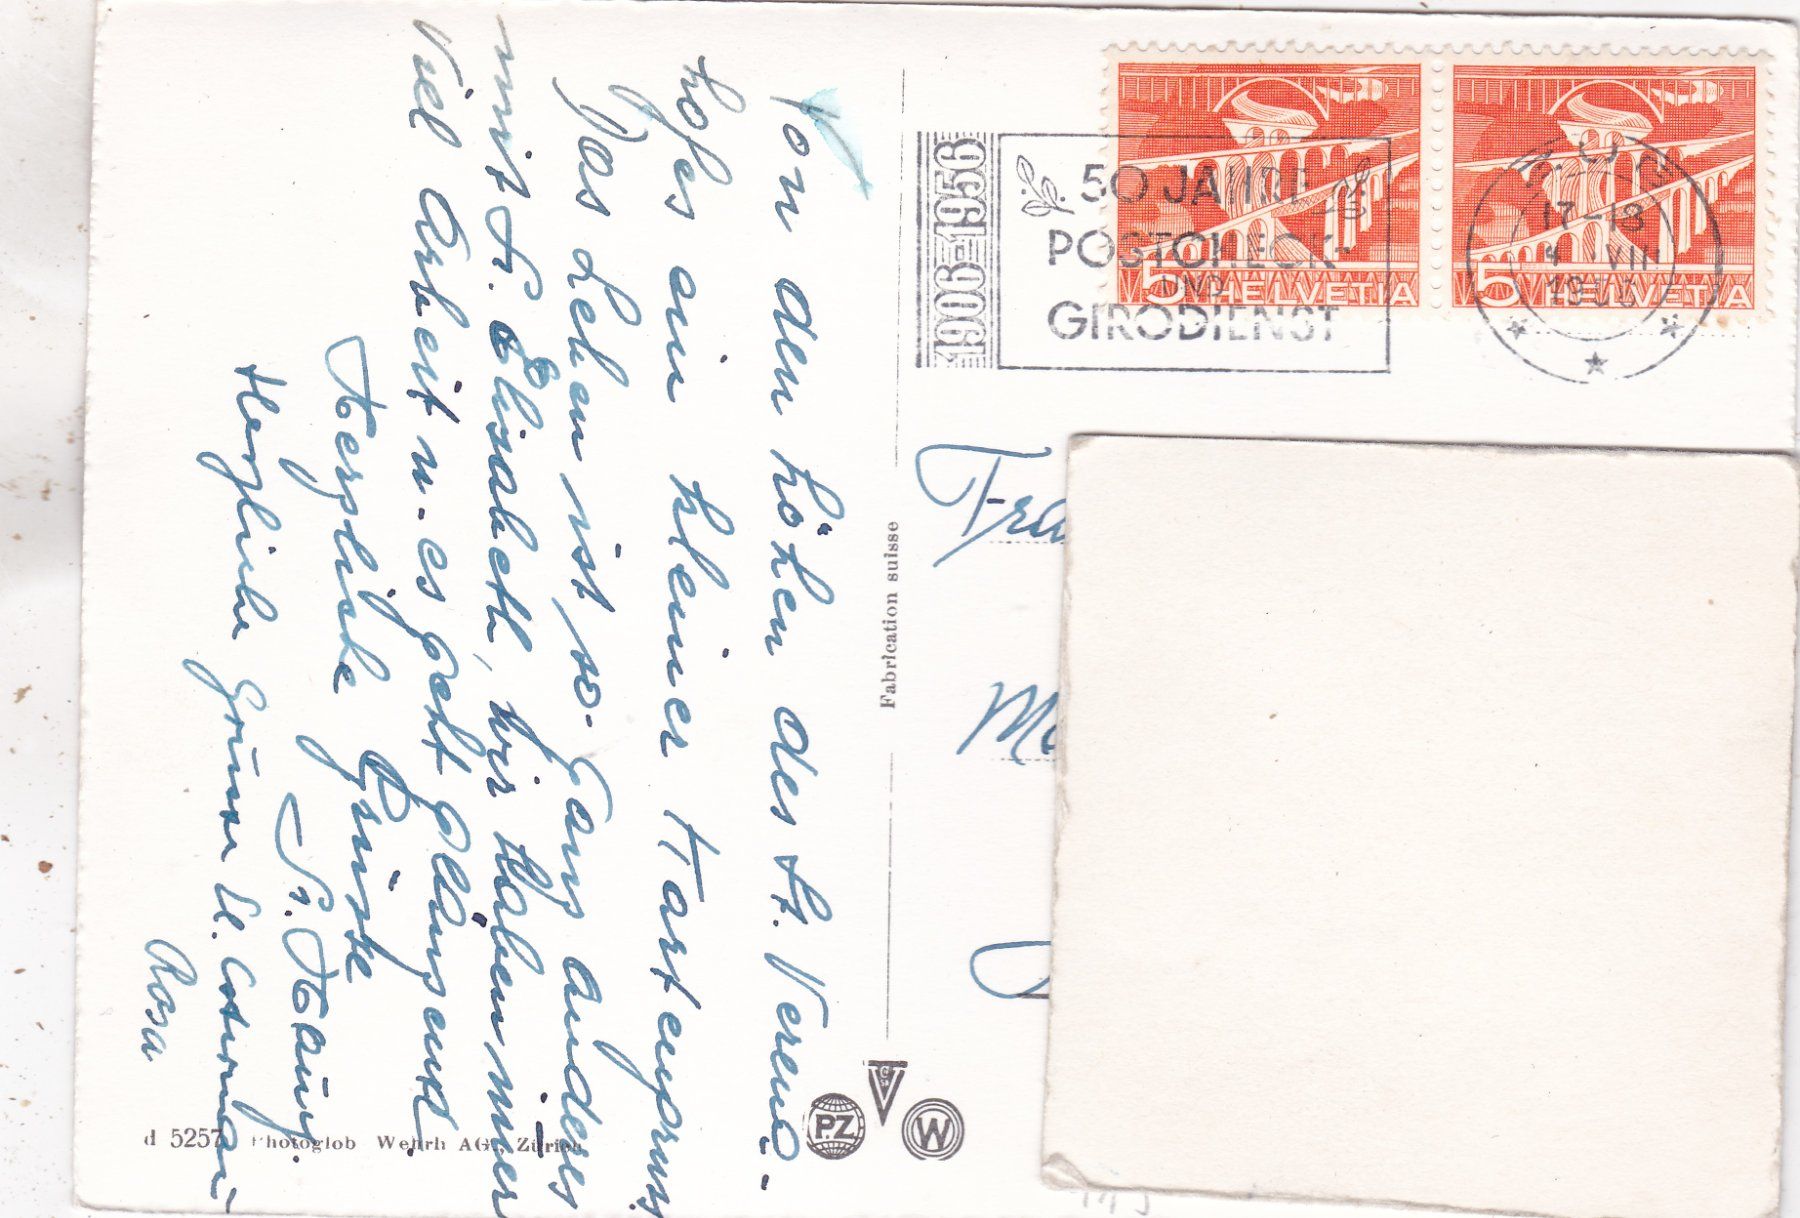 Von den höhen des St. Verena-
hofes ein kleiner Kartengruss
Das Leben ist so ganz anders
mit S. Elisabeth, wir haben immer
viel Arbeit u. es geht glänzend
Herzliche Grüsse
Herzliche Grüsse
Rosa
1906-1956
50 JAHRE
POSTCHECK-
UND
GIRODIENST
5 HELVETIA
5 HELVETIA
17-18
4 VIII
1956
Fabrication suisse
PZ
W
d 5257 Photoglob Wehrli AG., Zürich